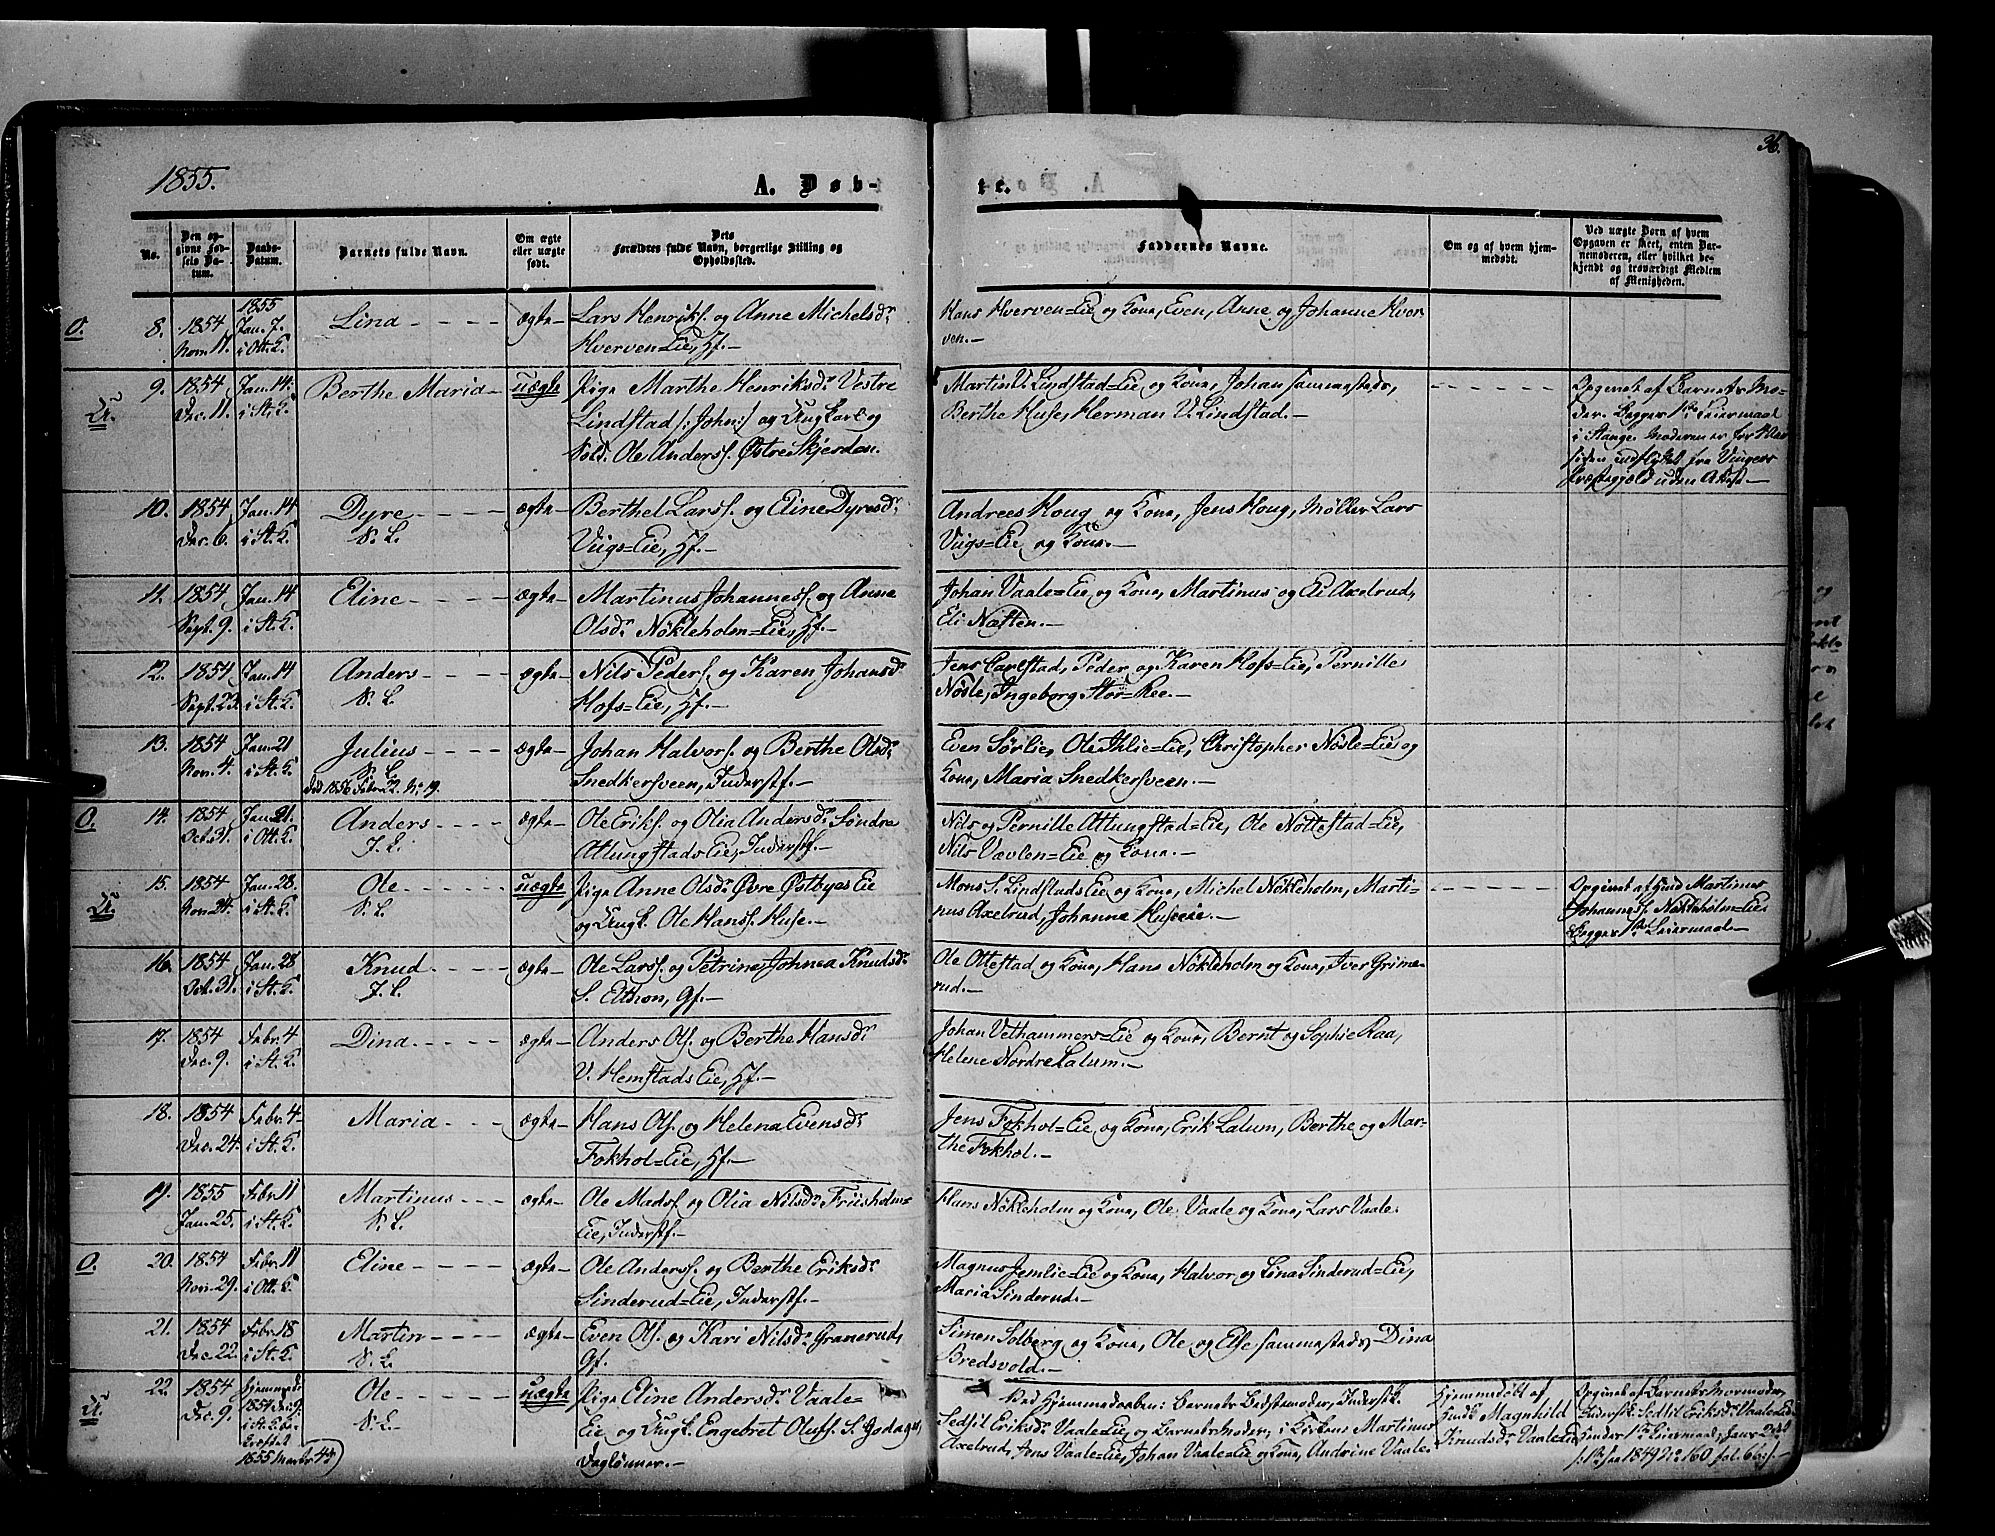 36.
1855.
A. Døb-
te.
No.
Den op-
givne Fød-
sels Da-
tum.
Daabs-
Datum.
Barnets fulde Navn.
Om ægte
eller uægte
født.
Dets
Forældres fulde Navn, borgerlige Stilling og
Opholdssted.
Faddernes Navne.
Om og af hvem hjem-
medøbt.
Ved uægte Børn af hvem
Opgaven er skeet, enten Bar-
nemoderen, eller hvilket be-
kjendt og troværdigt Medlem
af Menigheden.
O. 8. 1854 Nov. 17. 1855 Jan. 7. i Ott. K. Lina ægte
Lars Henriks. og Anne Michelsdr.
Hverven=Eie, Hf.
Hans Hverven=Eie og Kone, Even, Anne og Johanne Hver
ven.
U. 9. 1854 Dec. 11. Jan. 14. i St. K. Berthe Maria uægte
Pige Marthe Henriksdr. Vestre
Lindstad /:John:/ og Ungkarl og
Sold. Ole Anderss. Østre Skjerden.
Martin V. Lindstad=Eie og Kone, Johan sammesteds,
Berthe Huse, Herman V. Lindstad.
Opgivet af Barnets Mo-
der. Begges 1ste Leiermaal
i Stange. Moderen er for
siden indflyttet fra Vinger
Præstegjæld uden Attest
10. 1854 Dec. 6. Jan. 14 i St. K. Dyre S. L. ægte
Berthel Larss. og Eline Dyresdr.
Viigs=Eie, Hf.
Andrees Houg og Kone, Jens Houg, Møller Lars
Viigs=Eie og Kone.
11. 1854 Sept. 9. Jan. 14 i St. K. Eline ægte
Martinus Johanness. og Anne
Olsdr. Nökleholm=Eie, Hf.
Johan Vaale=Eie og Kone, Martinus og Ei Axelrud,
Eli Næsten.
12. 1854 Sept. 23. Jan. 14 i St. K. Anders S. L. ægte
Nils Peders. og Karen Johansdr.
Hofs=Eie, Hf.
Jens Carlstad, Peder og Karen Hofs=Eie, Pernille
Nösle, Ingeborg Stor=Ree.
13. 1854 Nov. 4. Jan. 21 i St. K. Julius S. L. ægte
død 1856 Febr. 2. No. 19.
Johan Halvors. og Berthe Olsdr.
Snedkersveen, Inderstf.
Even Sørlie, Ole Ihlie=Eie, Christopher Nösle=Eie og
Kone, Maria Snedkersveen.
O. 14. 1854 Oct. 31. Jan. 21. i Ott. K. Anders J. L. ægte
Ole Eriks. og Olia Andersdr. Søndre
Atlungstads Eie, Inderstf.
Nils og Pernille Atlungstad=Eie, Ole Nöttestad=Eie,
Nils Vævlen=Eie og Kone.
U. 15. 1854 Nov. 24. Jan. 28. i St. K. Ole S. L. uægte
Pige Anne Olsdr. Øvre Østbyes Eie
og Ungk. Ole Hanss. Huse.
Mons S. Lindstads Eie og Kone, Michel Nökleholm, Marti-
nus Axelrud, Johanne Huseeie.
Opgivet af Husmd Martinus
Johanness. Nökleholm=Eie
Begges 1ste Leiermaal
16. 1854 Oct. 31. Jan. 28 i St. K. Knud J. L. ægte
Ole Larss. og Petrine Johnea Knudsdr.
S. Elthon, Gf.
Ole Ottestad og Kone, Hans Nökleholm og Kone, Iver Grime-
rud.
17. 1854 Dec. 9. Febr. 4 i St. K. Dina ægte
Anders Ols. og Berthe Hansdr.
V. Hemstads Eie, Hf.
Johan Vethammers=Eie og Kone, Bernt og Sophie Raa,
Helene Nordre Lalum.
18. 1854 Dec. 24. Febr. 4 i St. K. Maria ægte
Hans Ols. og Helena Evensdr.
Fokhol=Eie, Hf.
Jens Fokhol=Eie og Kone, Erik Lalum, Berthe og Mar-
the Fokhol.
19. 1855 Jan. 25. Febr. 11 i St. K. Martinus S. L. ægte
Ole Madss. og Olia Nilsdr. Friisholm=
Eie, Inderstf.
Hans Nökleholm og Kone, Ole Vaale og Kone, Lars Vaale.
O. 20. 1854 Nov. 29. Febr. 11 i Ott. K. Eline ægte
Ole Anderss. og Berthe Eriksdr.
Sinderud=Eie, Inderstf.
Magnus Jemlie=Eie og Kone, Halvor og Lina Sinderud=Eie,
Maria Sinderud.
21. 1854 Dec. 22. Febr. 18 i St. K. Martin S. L. ægte
Even Ols. og Kari Nilsdr. Granerud,
Gf.
Simen Solberg og Kone, Ole og Else sammesteds, Dina
Bredsvold.
U. 22. 1854 Dec. 9. Hjemmedr. 1854 Dec. 9. i St. K. be-
kræftet 1855 Marts 4de Ole S. L. uægte
Pige Eline Andersdr. Vaale=
Eie og Ungk. Engebret Olufs. S. Gjodager,
Daglønner.
Ved Hjemmedaaben: Barnets Bedstemoder, Inderstk.
Sedsil Eriksdr. Vaale=Eie og Barnets Moder, i Kirken Martinus
Axelrud, Jens Vaale=Eie, Johan Vaale=Eie og Kone, Andrine Vaale
Hjemmedøbt af
Husk. Magnhild
Knudsdr. Vaale=Eie
Opgivet af Barnets Mormoder,
Inderstk. Sedsil Eriksdr. Vaale=Eie
/:1ste see 1849 No. 160 fol. 66:/.